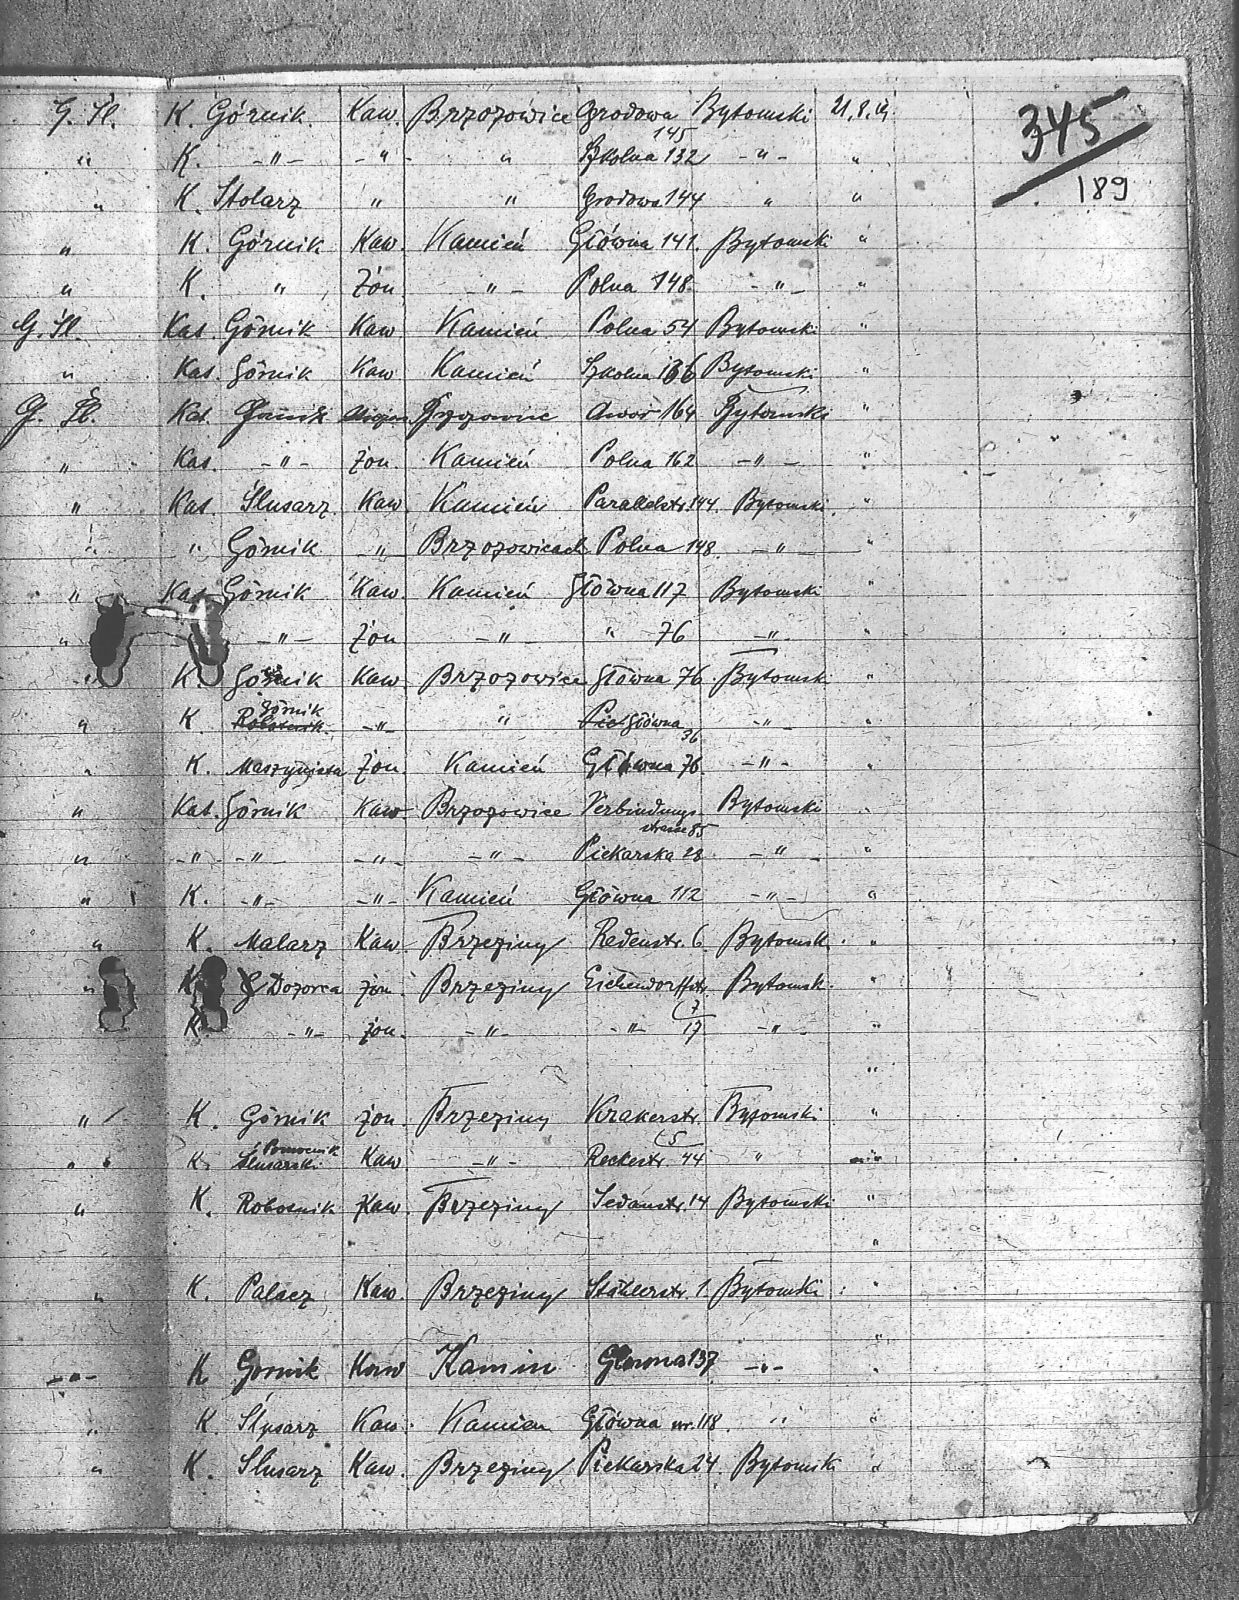 G. Śl. K. Górnik Kaw. Brzozowice Grodowa 145 Bytomski 21.8.19 345
" K. -"- -"- " Szkolna 132 -"- " 189
" K. Stolarz " " Grodowa 144 " "
" K. Górnik Kaw. Kamień Główna 141 Bytomski "
" K. " Żon. -"- Polna 148 -"- "
G. Śl. Kat. Górnik Kaw Kamień Polna 54 Bytomski "
" Kat. Górnik Kaw Kamień Szkolna 136 Bytomski "
G. Śl. Kat. Górnik Brzozowic 164 Bytomski "
" Kat. -"- żon. Kamień Polna 162 -"- "
" Kat. Ślusarz Kaw. Kamień Parallelstr. 144 Bytomski. "
" " Górnik -"- Brzozowicach Polna 148 -"- "
" Kat. Górnik Kaw. Kamień Główna 117 Bytomski "
" -"- Żon -"- " 76 -"- "
" K. Górnik Kaw. Brzozowice Główna 76 Bytomski "
" K. Robotnik. Górnik -"- " Główna 36 -"- "
" K. Maszynista Żon. Kamień Główna 76 -"- "
" Kat. Górnik Kaw Brzozowice Verbindungsstrasse 85 Bytomski "
" -"- -"- -"- -"- Piekarska 28 -"- "
" K. -"- -"- Kamień Główna 112 -"- "
" K. Malarz Kaw Brzeziny Redenstr. 6 Bytomsk. "
" K. Dozorca żon. Brzeziny Eichendorffstr. 7 Bytomsk. "
K. -"- żon. -"- -"- 17 -"- "
"
" K. Górnik żon. Brzeziny Krakerstr. 5 Bytomski "
" K. Pomocnik Ślusarski Kaw -"- Reckestr. 44 " "
" K. Robotnik Kaw. Brzeziny Sedanstr. 14 Bytomski "
"
" K. Palacz Kaw. Brzeziny 1 Bytomski "
"
-"- K Gornik Kaw Kamin Glowna 137 -"- "
" K. Ślusarz Kaw. Kamien Główna nr. 118. " "
" K. Ślusarz Kaw. Brzeziny Piekarska 24. Bytomsk "